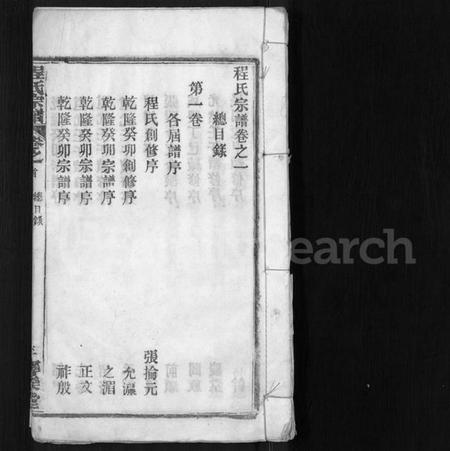 程氏宗譜卷之一
總目錄
第一卷
各屆譜序
程氏創修序 張掄元
乾隆癸卯創修序 允瀛
乾隆癸卯宗譜序 之湄
乾隆癸卯宗譜序 正文
乾隆癸卯宗譜序 祚殷
程氏宗譜 卷之一 首 總目錄
search